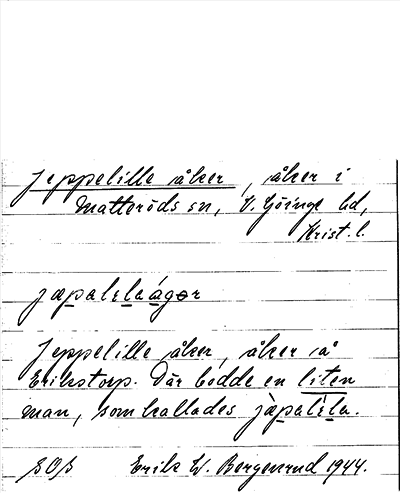 Jeppelille åker, åker i
Matteröds sn, V. Göinge hd,
Krist. l.
jæpalelaágər
Jeppelille åker, åker på
Erikstorp. Där bodde en liten
man, som kallades jæ̀palɛla.
Erik W. Bergenrud 1944.